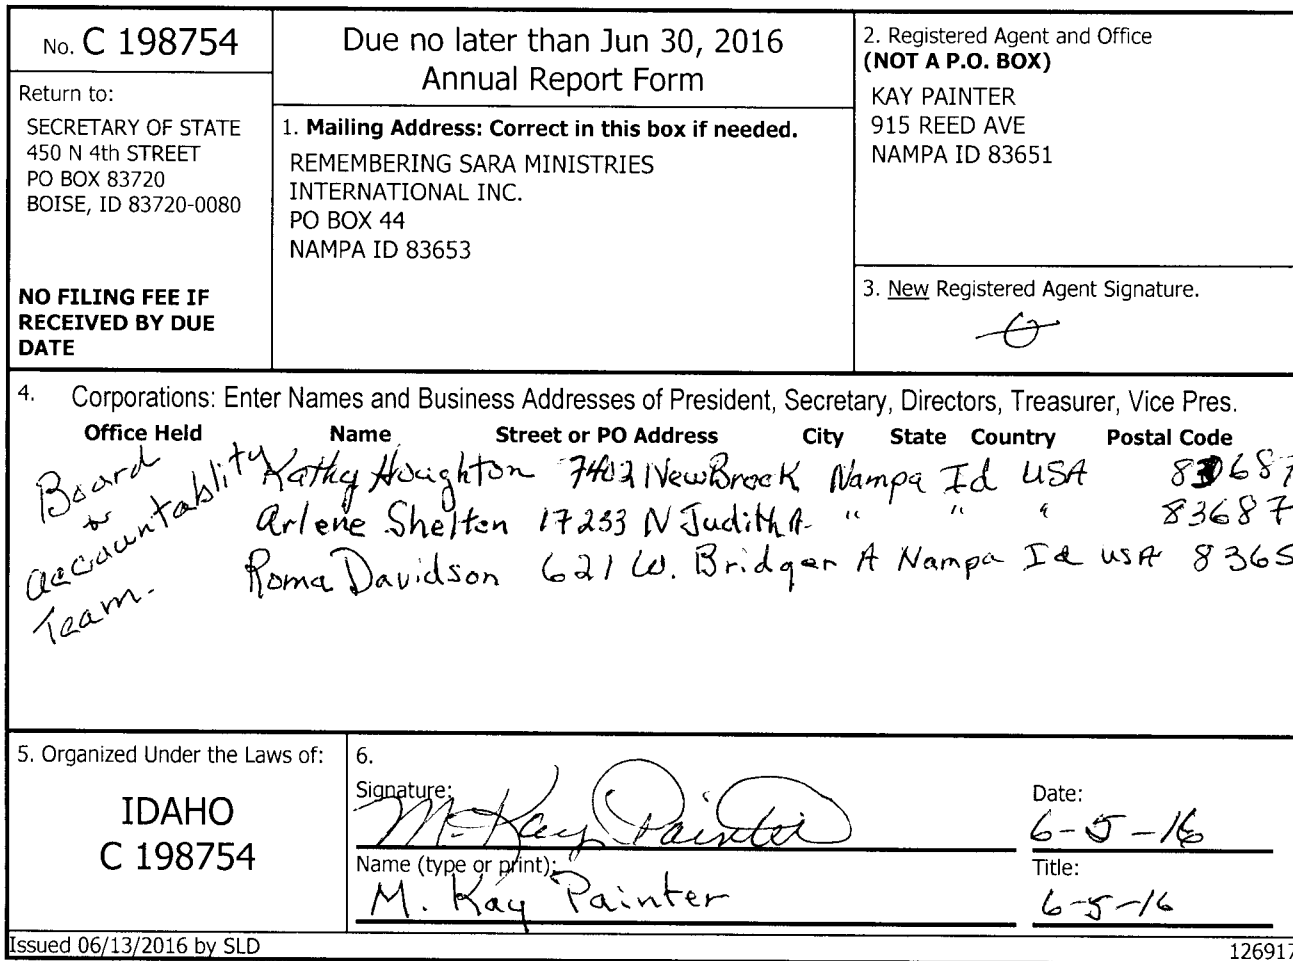 No. C 198754
Return to:
SECRETARY OF STATE
450 N 4th STREET
PO BOX 83720
BOISE, ID 83720-0080
NO FILING FEE IF
RECEIVED BY DUE
DATE
Due no later than Jun 30, 2016
Annual Report Form
1. Mailing Address: Correct in this box if needed.
REMEMBERING SARA MINISTRIES
INTERNATIONAL INC.
PO BOX 44
NAMPA ID 83653
2. Registered Agent and Office
(NOT A P.O. BOX)
KAY PAINTER
915 REED AVE
NAMPA ID 83651
3. New Registered Agent Signature.
4. Corporations: Enter Names and Business Addresses of President, Secretary, Directors, Treasurer, Vice Pres.
Office Held Name Street or PO Address City State Country Postal Code
Board
or
accountablity
Team.
Kathy Houghton 7402 NewBrook Nampa Id USA 83687
Arlene Shelton 17233 N Judith A. " " " 83687
Roma Davidson 621 W. Bridger A Nampa Id USA 8365
5. Organized Under the Laws of:
IDAHO
C 198754
6.
Signature:
M. Kay Painter
Name (type or print):
M. Kay Painter
Date:
6-5-16
Title:
6-5-16
Issued 06/13/2016 by SLD
126917